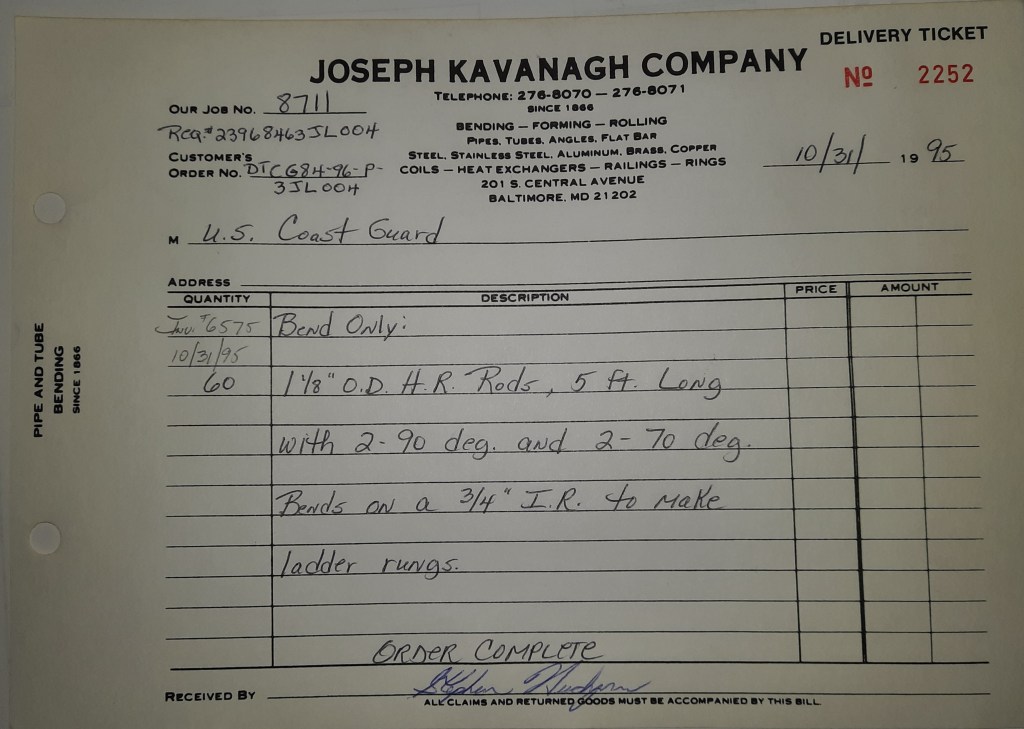 DELIVERY TICKET
JOSEPH KAVANAGH COMPANY
Nº 2252
TELEPHONE: 276-8070 — 276-8071
SINCE 1866
OUR JOB NO. 8711
BENDING — FORMING — ROLLING
Req.# 23968463JL004
PIPES, TUBES, ANGLES, FLAT BAR
CUSTOMER'S
STEEL, STAINLESS STEEL, ALUMINUM, BRASS, COPPER
10/31/ 19 95
ORDER NO. DTCG84-96-P-
COILS — HEAT EXCHANGERS — RAILINGS — RINGS
3JL004
201 S. CENTRAL AVENUE
BALTIMORE, MD 21202
M U.S. Coast Guard
ADDRESS
QUANTITY DESCRIPTION PRICE AMOUNT
Inv. #6575 Bend Only:
10/31/95
60 1 1/8" O.D. H.R. Rods, 5 ft. Long
with 2-90 deg. and 2-70 deg.
Bends on a 3/4" I.R. to make
ladder rungs.
ORDER COMPLETE
RECEIVED BY Stephen
ALL CLAIMS AND RETURNED GOODS MUST BE ACCOMPANIED BY THIS BILL
PIPE AND TUBE
BENDING
SINCE 1866